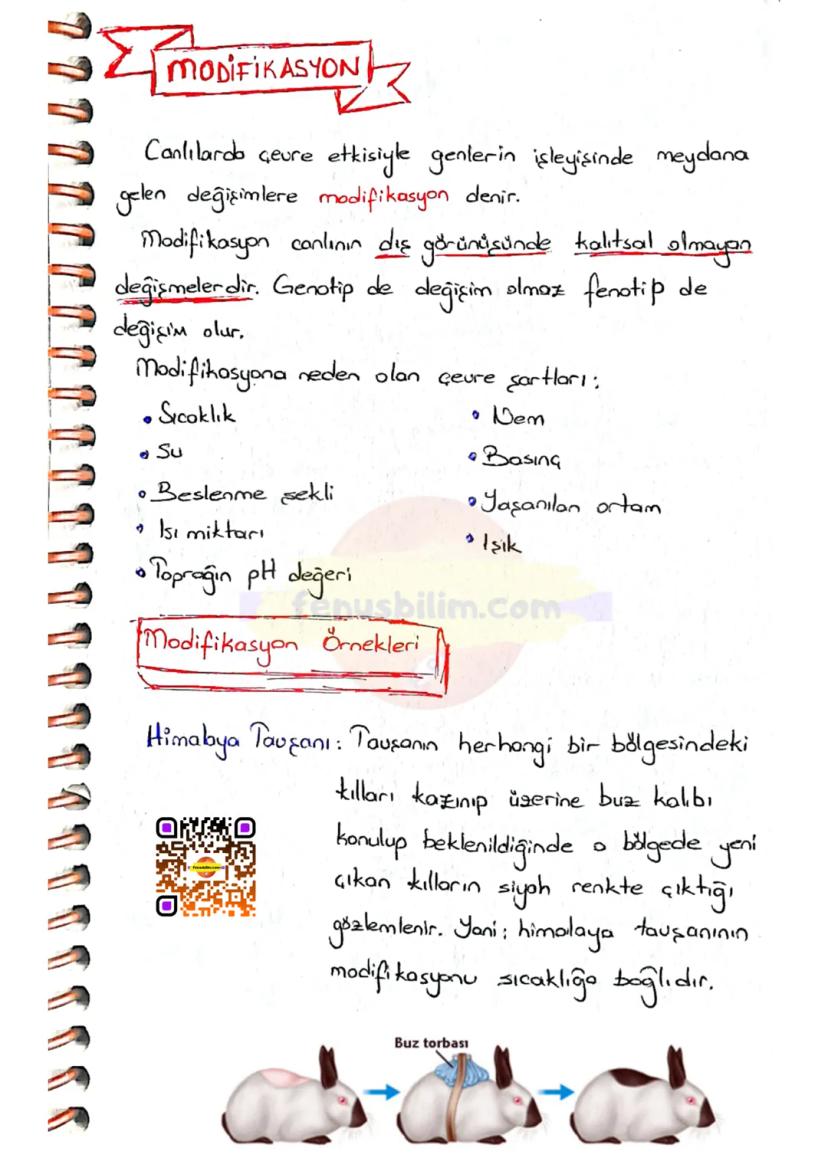 MODİFİKASYON
Canlılarda çevre etkisiyle genlerin işleyişinde meydana
gelen değişimlere modifikasyon denir.
Modifikasyon canlının dış görünüşünde kalıtsal olmayan
değişmelerdir. Genotip de değişim olmaz fenotip de
değişim olur.
Modifikasyona neden olan çevre şartları:
• Sıcaklık
• Su
• Beslenme şekli
• Isı miktarı
• Toprağın pH değeri
• Nem
• Basınç
• Yaşanılan ortam
• Işık
fenusbilim.com
Modifikasyon Örnekleri
Himalaya Tavşanı: Tavşanın herhangi bir bölgesindeki
kılları kazınıp üzerine buz kalıbı
konulup beklenildiğinde o bölgede yeni
çıkan kılların siyah renkte çıktığı
gözlemlenir. Yani; himalaya tavşanının
modifikasyonu sıcaklığa bağlıdır.
Buz torbası